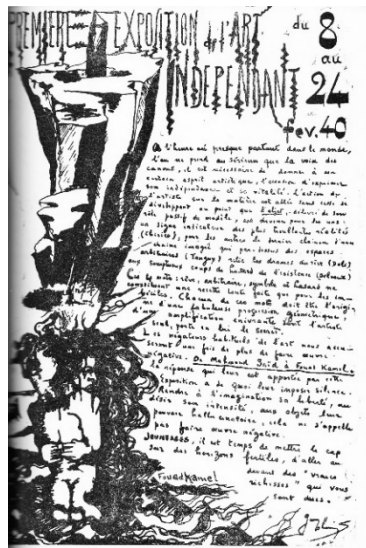 PREMIERE EXPOSITION de l'ART
INDEPENDANT
du 8
au
24
fev. 40
A l'heure où presque partout dans le monde,
l'on ne prend au sérieux que la voix des
canons, il est nécessaire de donner à un
certain esprit artistique, l'occasion d'exprimer
son indépendance et sa vitalité. L'action de
l'artiste sur la matière
au point que l'objet, de son
rôle passif de modèle, est devenu pour les uns
un signe indicateur des plus brillantes réalités
(Chirico), pour les autres le terrain
par dessus des espaces
(Tanguy) rites des drames du rire (Dali)
aux somptueux coups de hasard de l'existence (Delvaux)
Car les mots rêve, arbitraire, symbole et hasard ne
constituent une recette toute faite que pour les
Chacun de ces mots doit être l'origine
d'une fabuleuse progression géométrique
d'une amplification enivrante dont l'artiste
seul, porte en lui le secret.
Les habituels de l'art nous
seront une fois de plus de faire oeuvre
négative. De Mahmoud Saïd à Fouad Kamel
la réponse qui leur est apportée par cette
Exposition a de quoi leur imposer silence.
Rendre à l'imagination sa liberté, au
désir son intensité, aux objets leur
pouvoir hallucinatoire, cela ne s'appelle
pas faire oeuvre négative.
JEUNESSES, il est temps de mettre le cap
sur des horizons fertiles, d'aller au
devant des "vraies
richesses" qui vous
sont dues.
Fouad Kamel